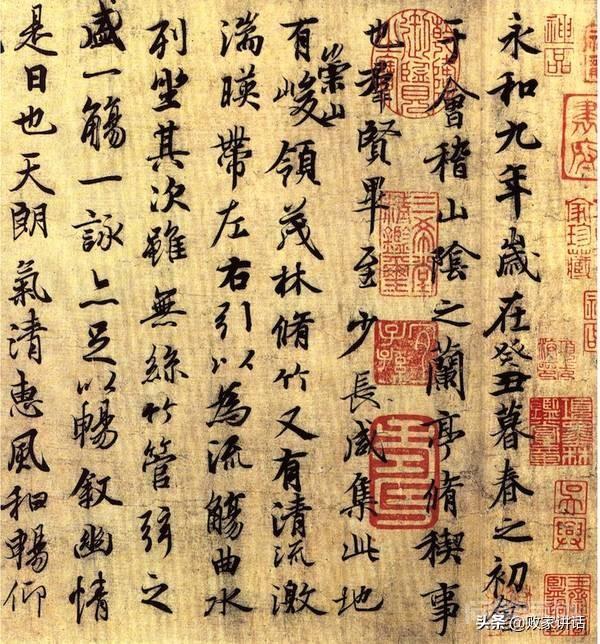 永和九年歲在癸丑暮春之初會
于會稽山陰之蘭亭脩稧事
也羣賢畢至少長咸集此地
有崇山峻領茂林脩竹又有清流激
湍暎帶左右引以為流觴曲水
列坐其次雖無絲竹管弦之
盛一觴一詠亦足以暢敘幽情
是日也天朗氣清惠風和暢仰
神品
三希堂精鑑璽
宜子孫
吳興
头条 @败家讲话